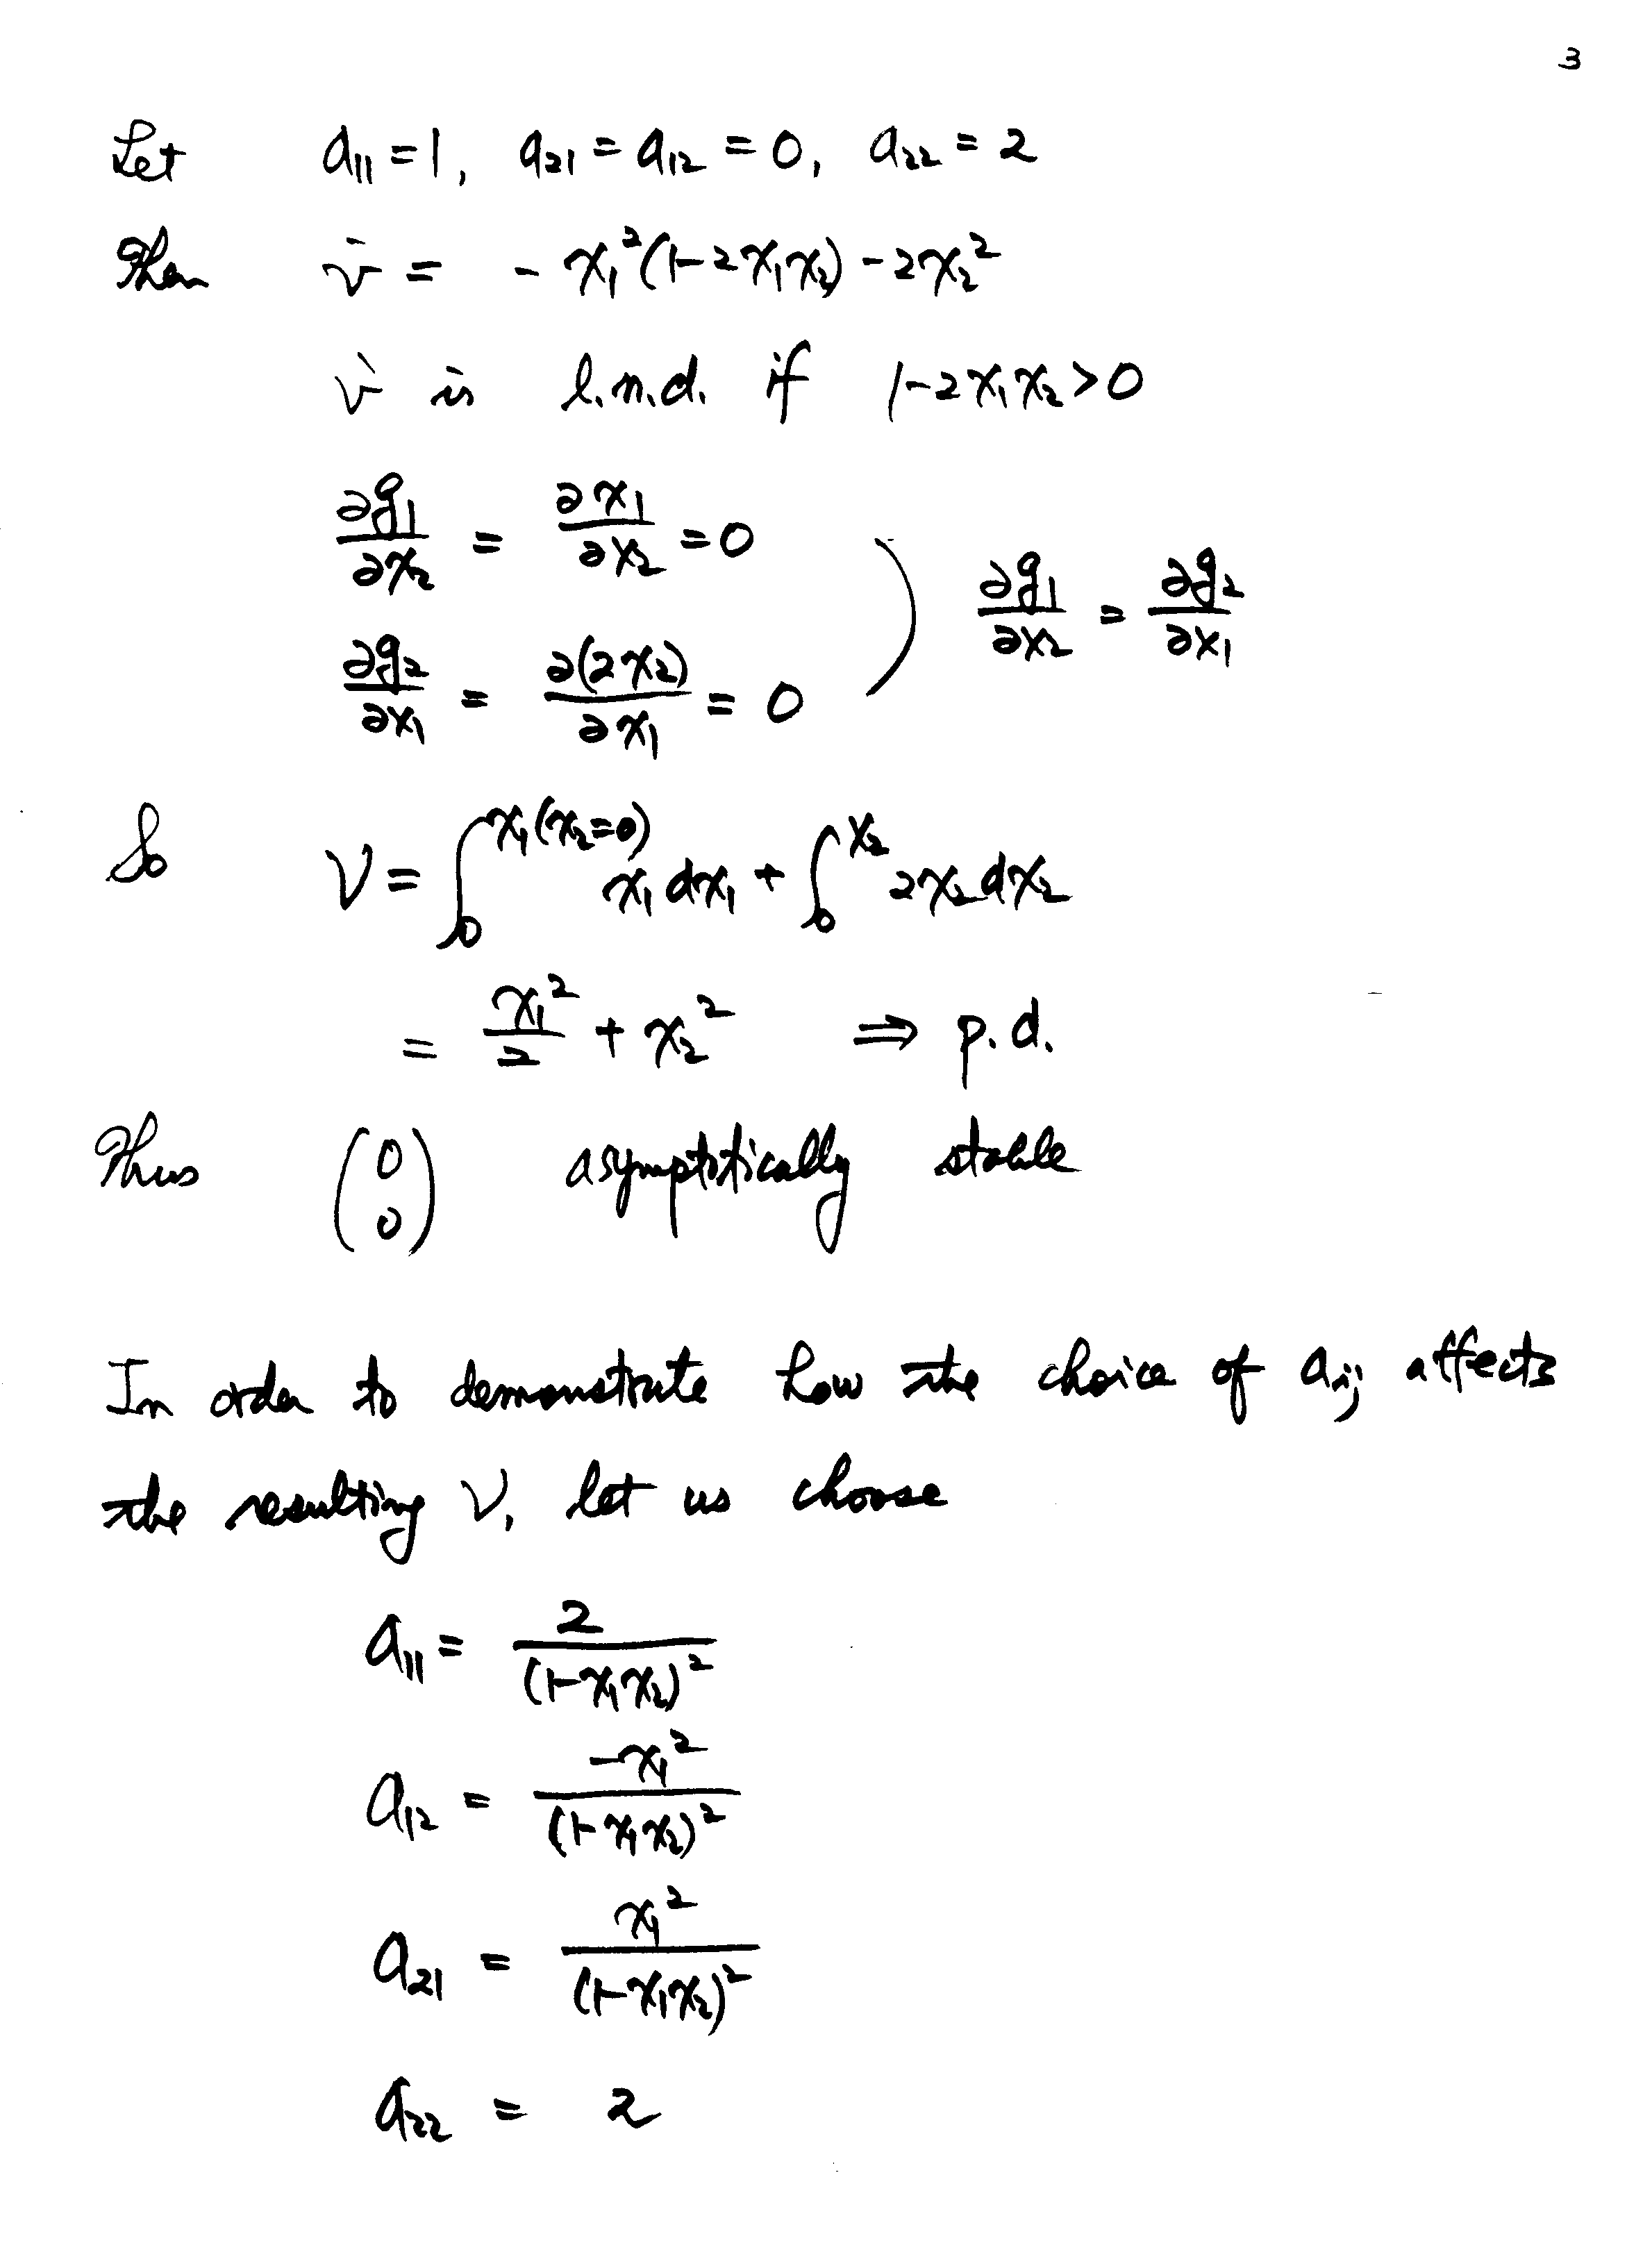 3
Let a₁₁ = 1, a₂₁ = a₁₂ = 0, a₂₂ = 2
Then v̇ = - x₁²(1-2x₁x₂) - 2x₂²
v̇ is l.n.d. if 1-2x₁x₂ > 0
∂g₁/∂x₂ = ∂x₁/∂x₂ = 0
∂g₂/∂x₁ = ∂(2x₂)/∂x₁ = 0 ) ∂g₁/∂x₂ = ∂g₂/∂x₁
So V = ∫₀^{x₁(x₂=0)} x₁ dx₁ + ∫₀^{x₂} 2x₂ dx₂
= x₁²/2 + x₂² ⇒ p.d.
Thus (0 0) asymptotically stable
In order to demonstrate how the choice of aᵢⱼ affects
the resulting V, let us choose
a₁₁ = 2/(1-x₁x₂)²
a₁₂ = -x₁²/(1-x₁x₂)²
a₂₁ = x₁²/(1-x₁x₂)²
a₂₂ = 2